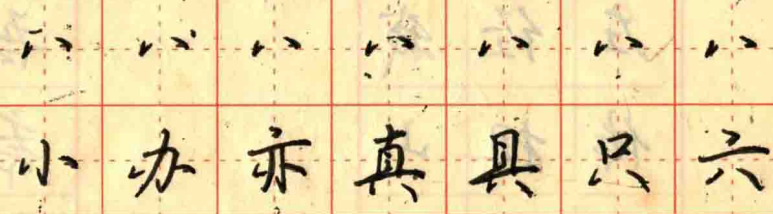 八 八 八 八 八 八 八
小 办 亦 真 具 只 六